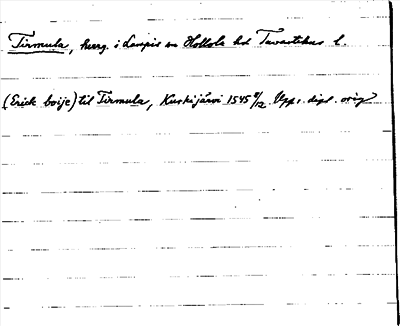 Tirmula, herrg. i Lampis sn Hollola hd Tavastehus l.
(Erick boije) til Tirmula, Kurkijärvi 1545 8/12. Upps. dipl. orig